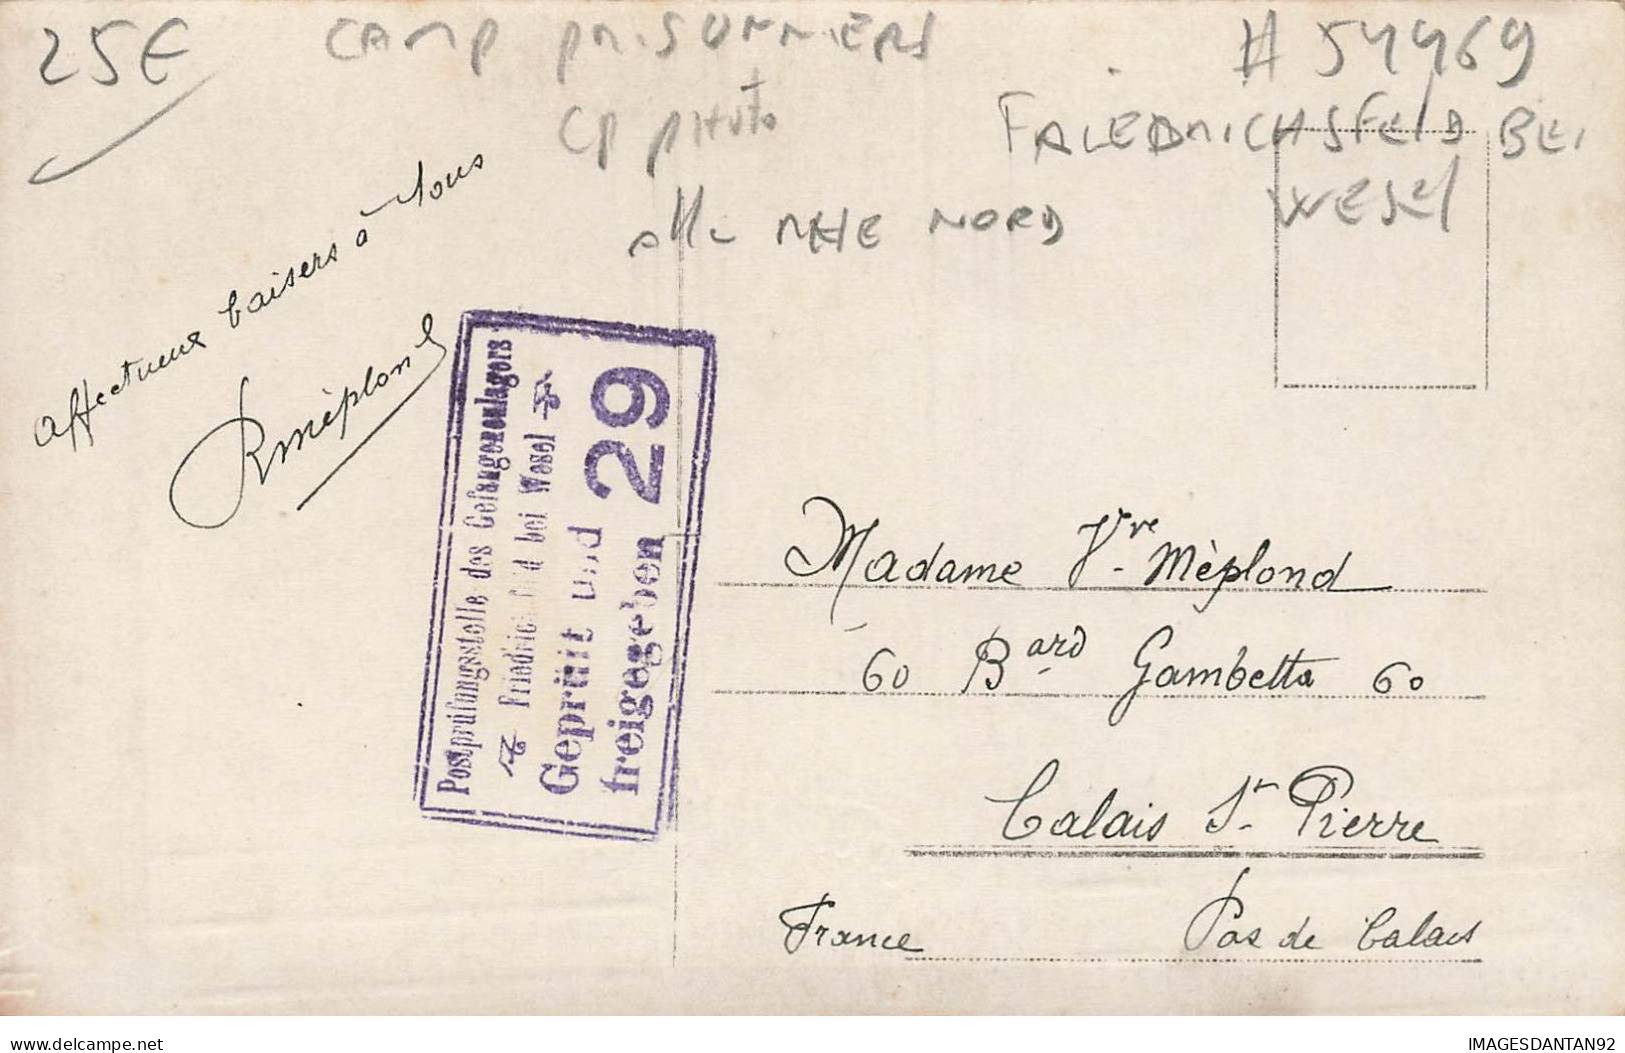 25€
CAMP PRISONNIERS
# 54469
CP PHOTO
FRIEDRICHSFELD BEI
WESEL
All RHE NORD
Affectueux baisers à tous
RMéplond
Postprüfungsstelle des Gefangenenlagers
Friedrichsfeld bei Wesel
Geprüft und
freigegeben 29
Madame Vve Méplond
60 Bard Gambetta 60
Calais St Pierre
France Pas de Calais
delcampe.net
IMAGESDANTAN92